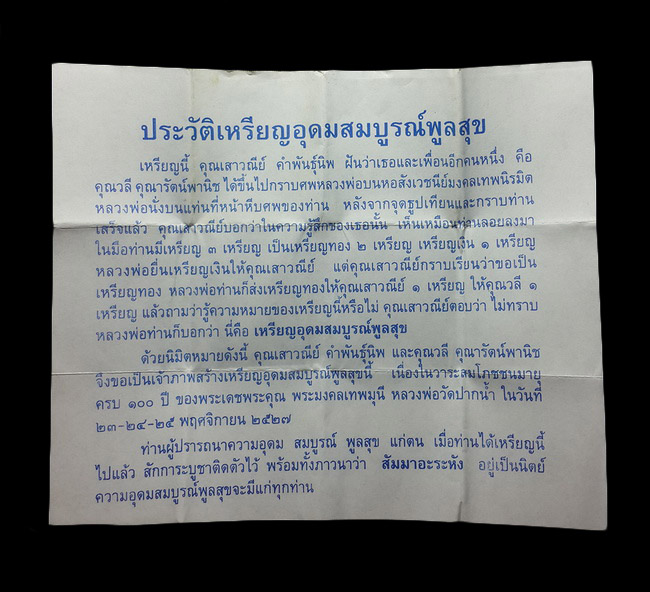 ประวัติเหรียญอุดมสมบูรณ์พูลสุข
เหรียญนี้ คุณเสาวณีย์ คำพันธุ์นิพ ฝันว่าเธอและเพื่อนอีกคนหนึ่ง คือ
คุณวลี คุณารัตน์พานิช ได้ขึ้นไปกราบศพหลวงพ่อบนหอสังเวชนีย์มงคลเทพนิรมิต
หลวงพ่อนั่งบนแท่นที่หน้าหีบศพของท่าน หลังจากจุดธูปเทียนและกราบท่าน
เสร็จแล้ว คุณเสาวณีย์บอกว่าในความรู้สึกของเธอนั้น เห็นเหมือนท่านลอยลงมา
ในมือท่านมีเหรียญ ๓ เหรียญ เป็นเหรียญทอง ๒ เหรียญ เหรียญเงิน ๑ เหรียญ
หลวงพ่อยื่นเหรียญเงินให้คุณเสาวณีย์ แต่คุณเสาวณีย์กราบเรียนว่าขอเป็น
เหรียญทอง หลวงพ่อท่านก็ส่งเหรียญทองให้คุณเสาวณีย์ ๑ เหรียญ ให้คุณวลี ๑
เหรียญ แล้วถามว่ารู้ความหมายของเหรียญนี้หรือไม่ คุณเสาวณีย์ตอบว่า ไม่ทราบ
หลวงพ่อท่านก็บอกว่า นี่คือ เหรียญอุดมสมบูรณ์พูลสุข
ด้วยนิมิตหมายดังนี้ คุณเสาวณีย์ คำพันธุ์นิพ และคุณวลี คุณารัตน์พานิช
จึงขอเป็นเจ้าภาพสร้างเหรียญอุดมสมบูรณ์พูลสุขนี้ เนื่องในวาระสมโภชชนมายุ
ครบ ๑๐๐ ปี ของพระเดชพระคุณ พระมงคลเทพมุนี หลวงพ่อวัดปากน้ำ ในวันที่
๒๓-๒๔-๒๕ พฤศจิกายน ๒๕๒๗
ท่านผู้ปรารถนาความอุดม สมบูรณ์ พูลสุข แก่ตน เมื่อท่านได้เหรียญนี้
ไปแล้ว สักการะบูชาติดตัวไว้ พร้อมทั้งภาวนาว่า สัมมาอะระหัง อยู่เป็นนิตย์
ความอุดมสมบูรณ์พูลสุขจะมีแก่ทุกท่าน